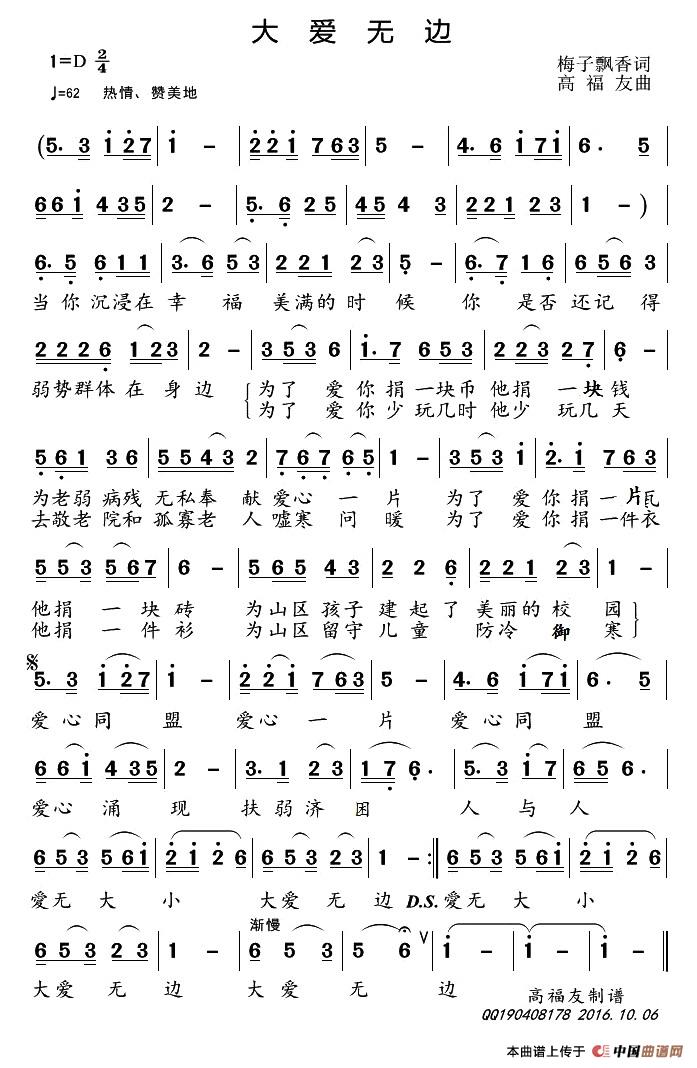 大 爱 无 边
1=D 2/4
梅子飘香词
♩=62 热情、赞美地
高 福 友曲
(5. 3 1 2 7 | 1 - | 2 2 1 7 6 3 | 5 - | 4. 6 1 7 1 | 6 . 5 |
6 6 1 4 3 5 | 2 - | 5. 6 2 5 | 4 5 4 3 | 2 2 1 2 3 | 1 - )
6. 5 6 1 1 | 3. 6 5 3 | 2 2 1 2 3 | 5 - | 6. 7 1 6 | 6 5 6 3 |
当 你 沉浸在 幸 福 美满的 时 候 你 是否 还记 得
2 2 2 6 1 2 3 | 2 - | 3 5 3 6 | 1. 7 6 5 3 | 2 2 3 2 7 | 6 - |
弱势群体 在 身 边 为了 爱 你 捐 一块币 他捐 一 块 钱
为了 爱 你 少 玩几时 他少 玩几 天
5 6 1 3 6 | 5 5 4 3 2 | 7 6 7 6 5 | 1 - | 3 5 3 1 | 2. 1 7 6 3 |
为老弱 病残 无私奉 献 爱心 一 片 为了 爱 你捐 一 片瓦
去敬老 院和 孤寡老 人 嘘寒 问 暖 为了 爱 你捐 一件衣
5 5 3 5 6 7 | 6 - | 5 6 5 4 3 | 2 2 6 | 2 2 1 2 3 | 1 - |
他捐 一 块 砖 为山区 孩子 建 起 了 美丽的 校 园
他捐 一 件 衫 为山区 留守 儿 童 防冷 御 寒
5. 3 1 2 7 | 1 - | 2 2 1 7 6 3 | 5 - | 4. 6 1 7 1 | 6 . 5 |
爱 心 同 盟 爱心 一 片 爱 心 同 盟
6 6 1 4 3 5 | 2 - | 3. 1 2 3 | 1 7 6 . | 5. 3 1 7 | 6 5 6 |
爱心 涌 现 扶 弱 济 困 人 与 人
6 5 3 5 6 1 | 2 1 2 6 | 6 5 3 2 3 | 1 - :‖ 6 5 3 5 6 1 | 2 1 2 6 |
爱无 大 小 大爱 无 边 D.S. 爱无 大 小
渐慢
6 5 3 2 3 | 1 - | 6 5 3 | 5 6 ∨ | 1 - | 1 - | 1 - ‖
大爱 无 边 大 爱 无 边
高福友制谱
QQ190408178 2016.10.06
本曲谱上传于 中国曲谱网